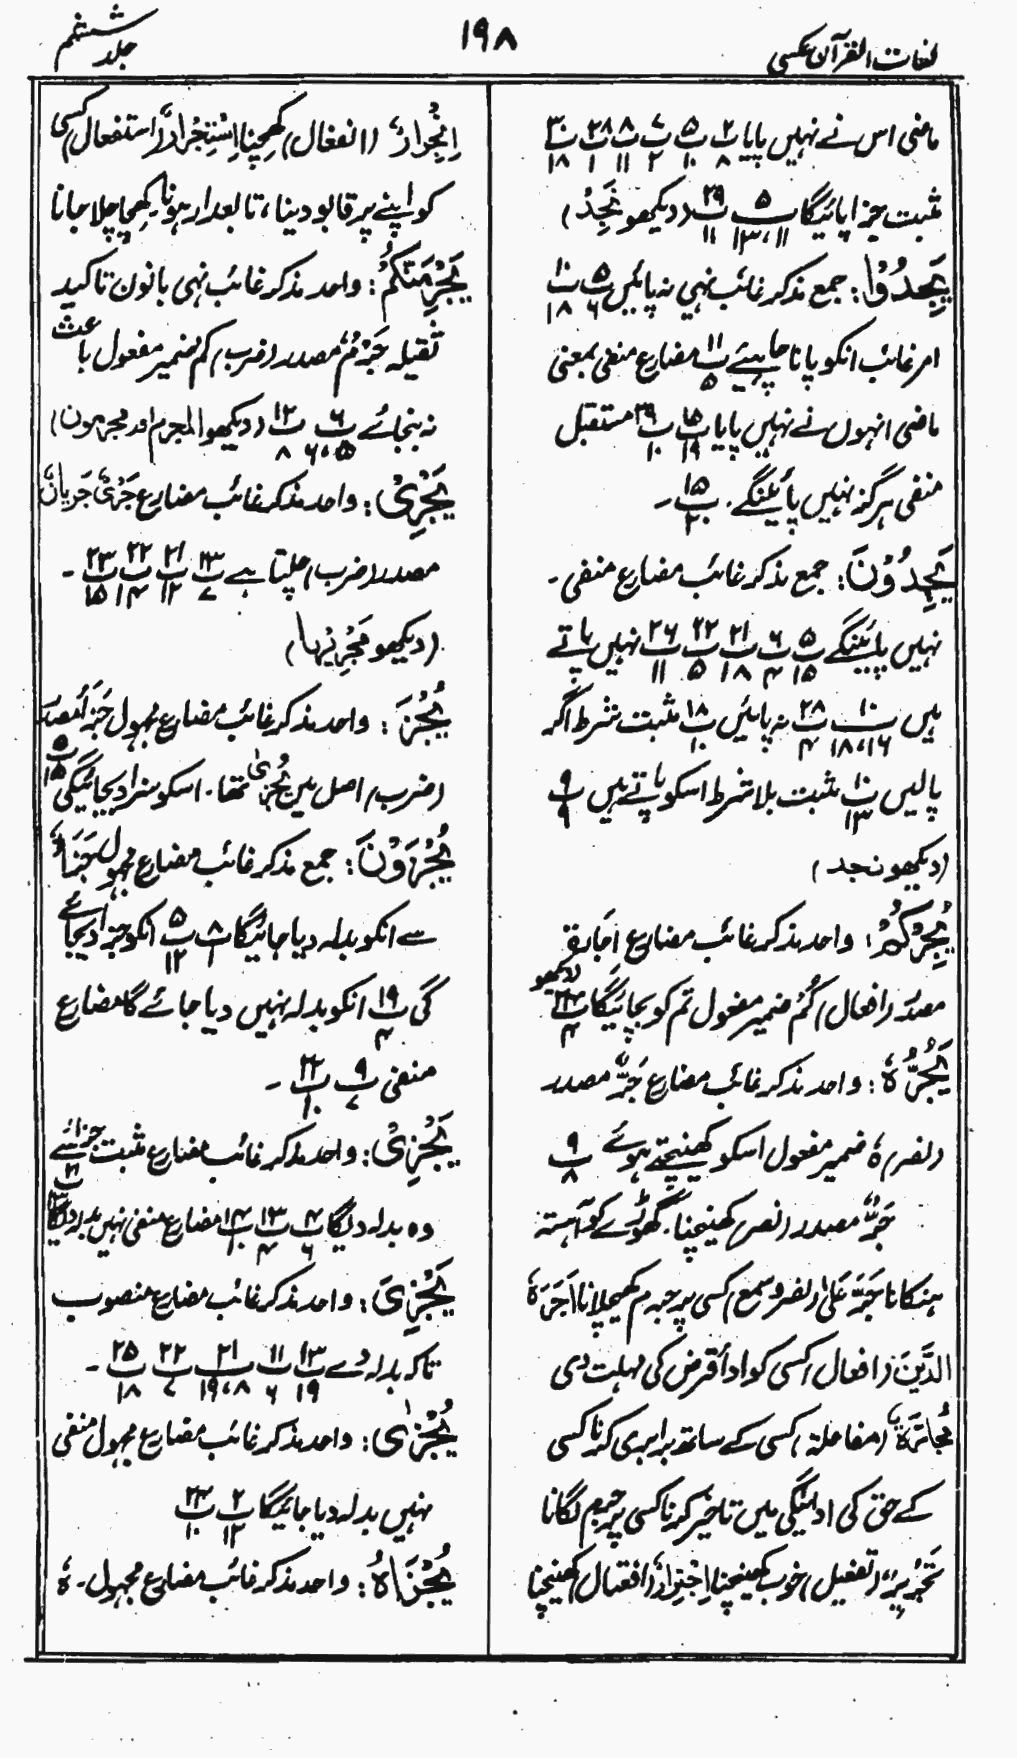 لغات القرآن عکسی
۱۹۸
جلد ششم
ماضی اس نے نہیں پایا پ۲/۸ پ۵/۱۰ پ۷/۲ پ۸/۱۱ پ۲۸/۱ پ۳۰/۱۸
مثبت جزا پائیگا پ۵/۱۱،۱۳ پ۲۹/۱۱ (دیکھو نَجِدُ)
یَجِدُوْا: جمع مذکر غائب نہی نہ پائیں پ۵/۶ پ۱۰/۱۸
امر غائب انکو پانا چاہیئے پ۱۱/۵ مضارع منفی بمعنی
ماضی انہوں نے نہیں پایا پ۱۵/۱۹ پ۲۹/۱۰ مستقبل
منفی ہرگز نہیں پائینگے۔ پ۱۵/۲۰۔
یَجِدُوْنَ: جمع مذکر غائب مضارع منفی۔
نہیں پایئنگے پ۵/۱۵ پ۶/۴ پ۲۱/۱۸ پ۲۲/۵ پ۲۶/۱۱ نہیں پاتے
ہیں پ۱۰/۱۶،۱۸ پ۲۸/۴ نہ پائیں پ۱۸/۱۰ مثبت شرط اگر
پالیں پ۱۰/۱۳ مثبت بلا شرط اسکو پاتے ہیں پ۹/۹
(دیکھو نجد)
یُجِرْکُمْ: واحد مذکر غائب مضارع اجارۃ
مصدر (افعال) کُمْ ضمیر مفعول تم کو بچائیگا پ۲۶/۴ دیکھو
یَجُرُّہٗ: واحد مذکر غائب مضارع جَرٌّ مصدر
(نصر) ہٗ ضمیر مفعول اسکو کھینچتے ہوئے پ۹/۸
جَرٌّ مصدر (نصر) کھینچنا۔ گھوڑے کو آہستہ
ہنکانا جَرَّ عَلٰی (نصر و سمع) کسی پر جرم کھیچلانا اَجَرَہٗ
الدَّیْنَ (افعال) کسی کو اداء قرض کی مہلت دی
مُجَارَّۃٌ (مفاعلۃ) کسی کے ساتھ برابری کرنا کسی
کے حق کی ادائیگی میں تاخیر کرنا کسی پر جرم لگانا
تَجْرِیْرٌ (تفعیل) خوب کھینچنا اِجْتِرَارٌ (افتعال) کھینچنا
اِنْجِرَارٌ (انفعال) کھچنا اِسْتِجْرَارٌ (استفعال) کسی
کو اپنے پر قابو دینا، تابعدار ہونا۔ کھچا چلا جانا
یَجْرِمَنَّکُمْ: واحد مذکر غائب نہی بانون تاکید
ثقیلہ جَرْمٌ مصدر (ضرب) کم ضمیر مفعول باعث
نہ بنجائے پ۶/۵،۶ پ۱۲/۸ (دیکھو المجرم اور مجرمون)
یَجْرِیْ: واحد مذکر غائب مضارع جَرْیٌ جَرَیَانٌ
مصدر (ضرب) چلتا ہے پ۱۳/۷ پ۲۱/۱۲ پ۲۲/۱۴ پ۲۳/۱۵۔
(دیکھو مَجْرٖىہَا)
یُجْزَ: واحد مذکر غائب مضارع مجہول جَزَاءٌ مصدر
(ضرب) اصل میں یُجْزٰی تھا۔ اسکو سزا دیجائیگی پ۵/۱۵
یُجْزَوْنَ: جمع مذکر غائب مضارع مجہول جَزَاءٌ
سے انکو بدلہ دیا جائیگا پ۸/۱ پ۵/۱۲ انکو جزا دیجائے
گی پ۱۹/۴ انکو بدلہ نہیں دیا جائے گا مضارع
منفی پ۹/۷ پ۲۲/۱۰۔
یَجْزِیْ: واحد مذکر غائب مضارع مثبت جزاء سے
وہ بدلہ دیگا پ۴/۶ پ۱۳/۴ پ۱۴/۱۰ مضارع منفی نہیں بدلہ دیگا پ۲۱/۱۳
یَجْزِیَ: واحد مذکر غائب مضارع منصوب
تاکہ بدلہ دے پ۱۳/۱۹ پ۱۱/۶ پ۲۱/۸،۱۹ پ۲۲/۷ پ۲۵/۱۸۔
یُجْزٰی: واحد مذکر غائب مضارع مجہول منفی
نہیں بدلہ دیا جائیگا پ۲/۱۲ پ۲۳/۱۰
یُجْزَاہُ: واحد مذکر غائب مضارع مجہول۔ ہٗ